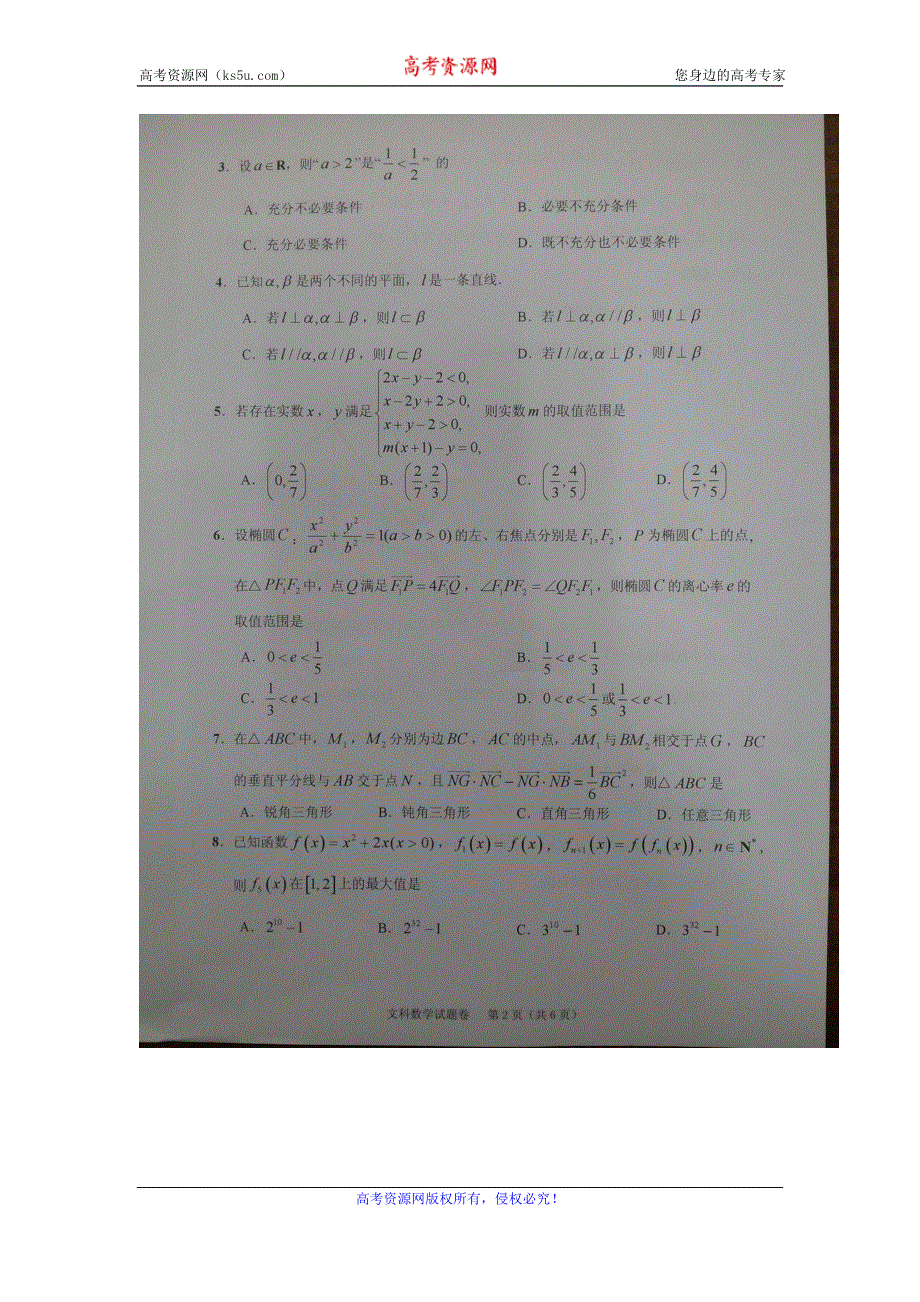 高考资源网（ks5u.com）
高考资源网
您身边的高考专家
3．设 a∈R，则“a＞2”是“1/a＜1/2” 的
A．充分不必要条件
B．必要不充分条件
C．充分必要条件
D．既不充分也不必要条件
4．已知 α,β 是两个不同的平面，l 是一条直线．
A．若 l⊥α,α⊥β，则 l⊂β
B．若 l⊥α,α//β，则 l⊥β
C．若 l//α,α//β，则 l⊂β
D．若 l//α,α⊥β，则 l⊥β
5．若存在实数 x，y 满足 { 2x−y−2<0, x−2y+2>0, x+y−2>0, m(x+1)−y=0, 则实数 m 的取值范围是
A．(0,2/7)
B．(2/7,2/3)
C．(2/3,4/5)
D．(2/7,4/5)
6．设椭圆 C：x²/a²+y²/b²=1(a>b>0) 的左、右焦点分别是 F₁,F₂，P 为椭圆 C 上的点，
在△PF₁F₂ 中，点 Q 满足 F₁P=4F₁Q，∠F₁PF₂=∠QF₂F₁，则椭圆 C 的离心率 e 的
取值范围是
A．0<e<1/5
B．1/5<e<1/3
C．1/3<e<1
D．0<e<1/5 或 1/3<e<1
7．在△ABC 中，M₁，M₂ 分别为边 BC，AC 的中点，AM₁ 与 BM₂ 相交于点 G，BC
的垂直平分线与 AB 交于点 N，且 NG·NC−NG·NB=1/6 BC²，则△ABC 是
A．锐角三角形
B．钝角三角形
C．直角三角形
D．任意三角形
8．已知函数 f(x)=x²+2x(x>0)，f₁(x)=f(x)，fₙ₊₁(x)=f(fₙ(x))，n∈N*，
则 f₅(x) 在 [1,2] 上的最大值是
A．2¹⁰−1
B．2³²−1
C．3¹⁰−1
D．3³²−1
文科数学试题卷 第 2 页（共 6 页）
高考资源网版权所有，侵权必究！